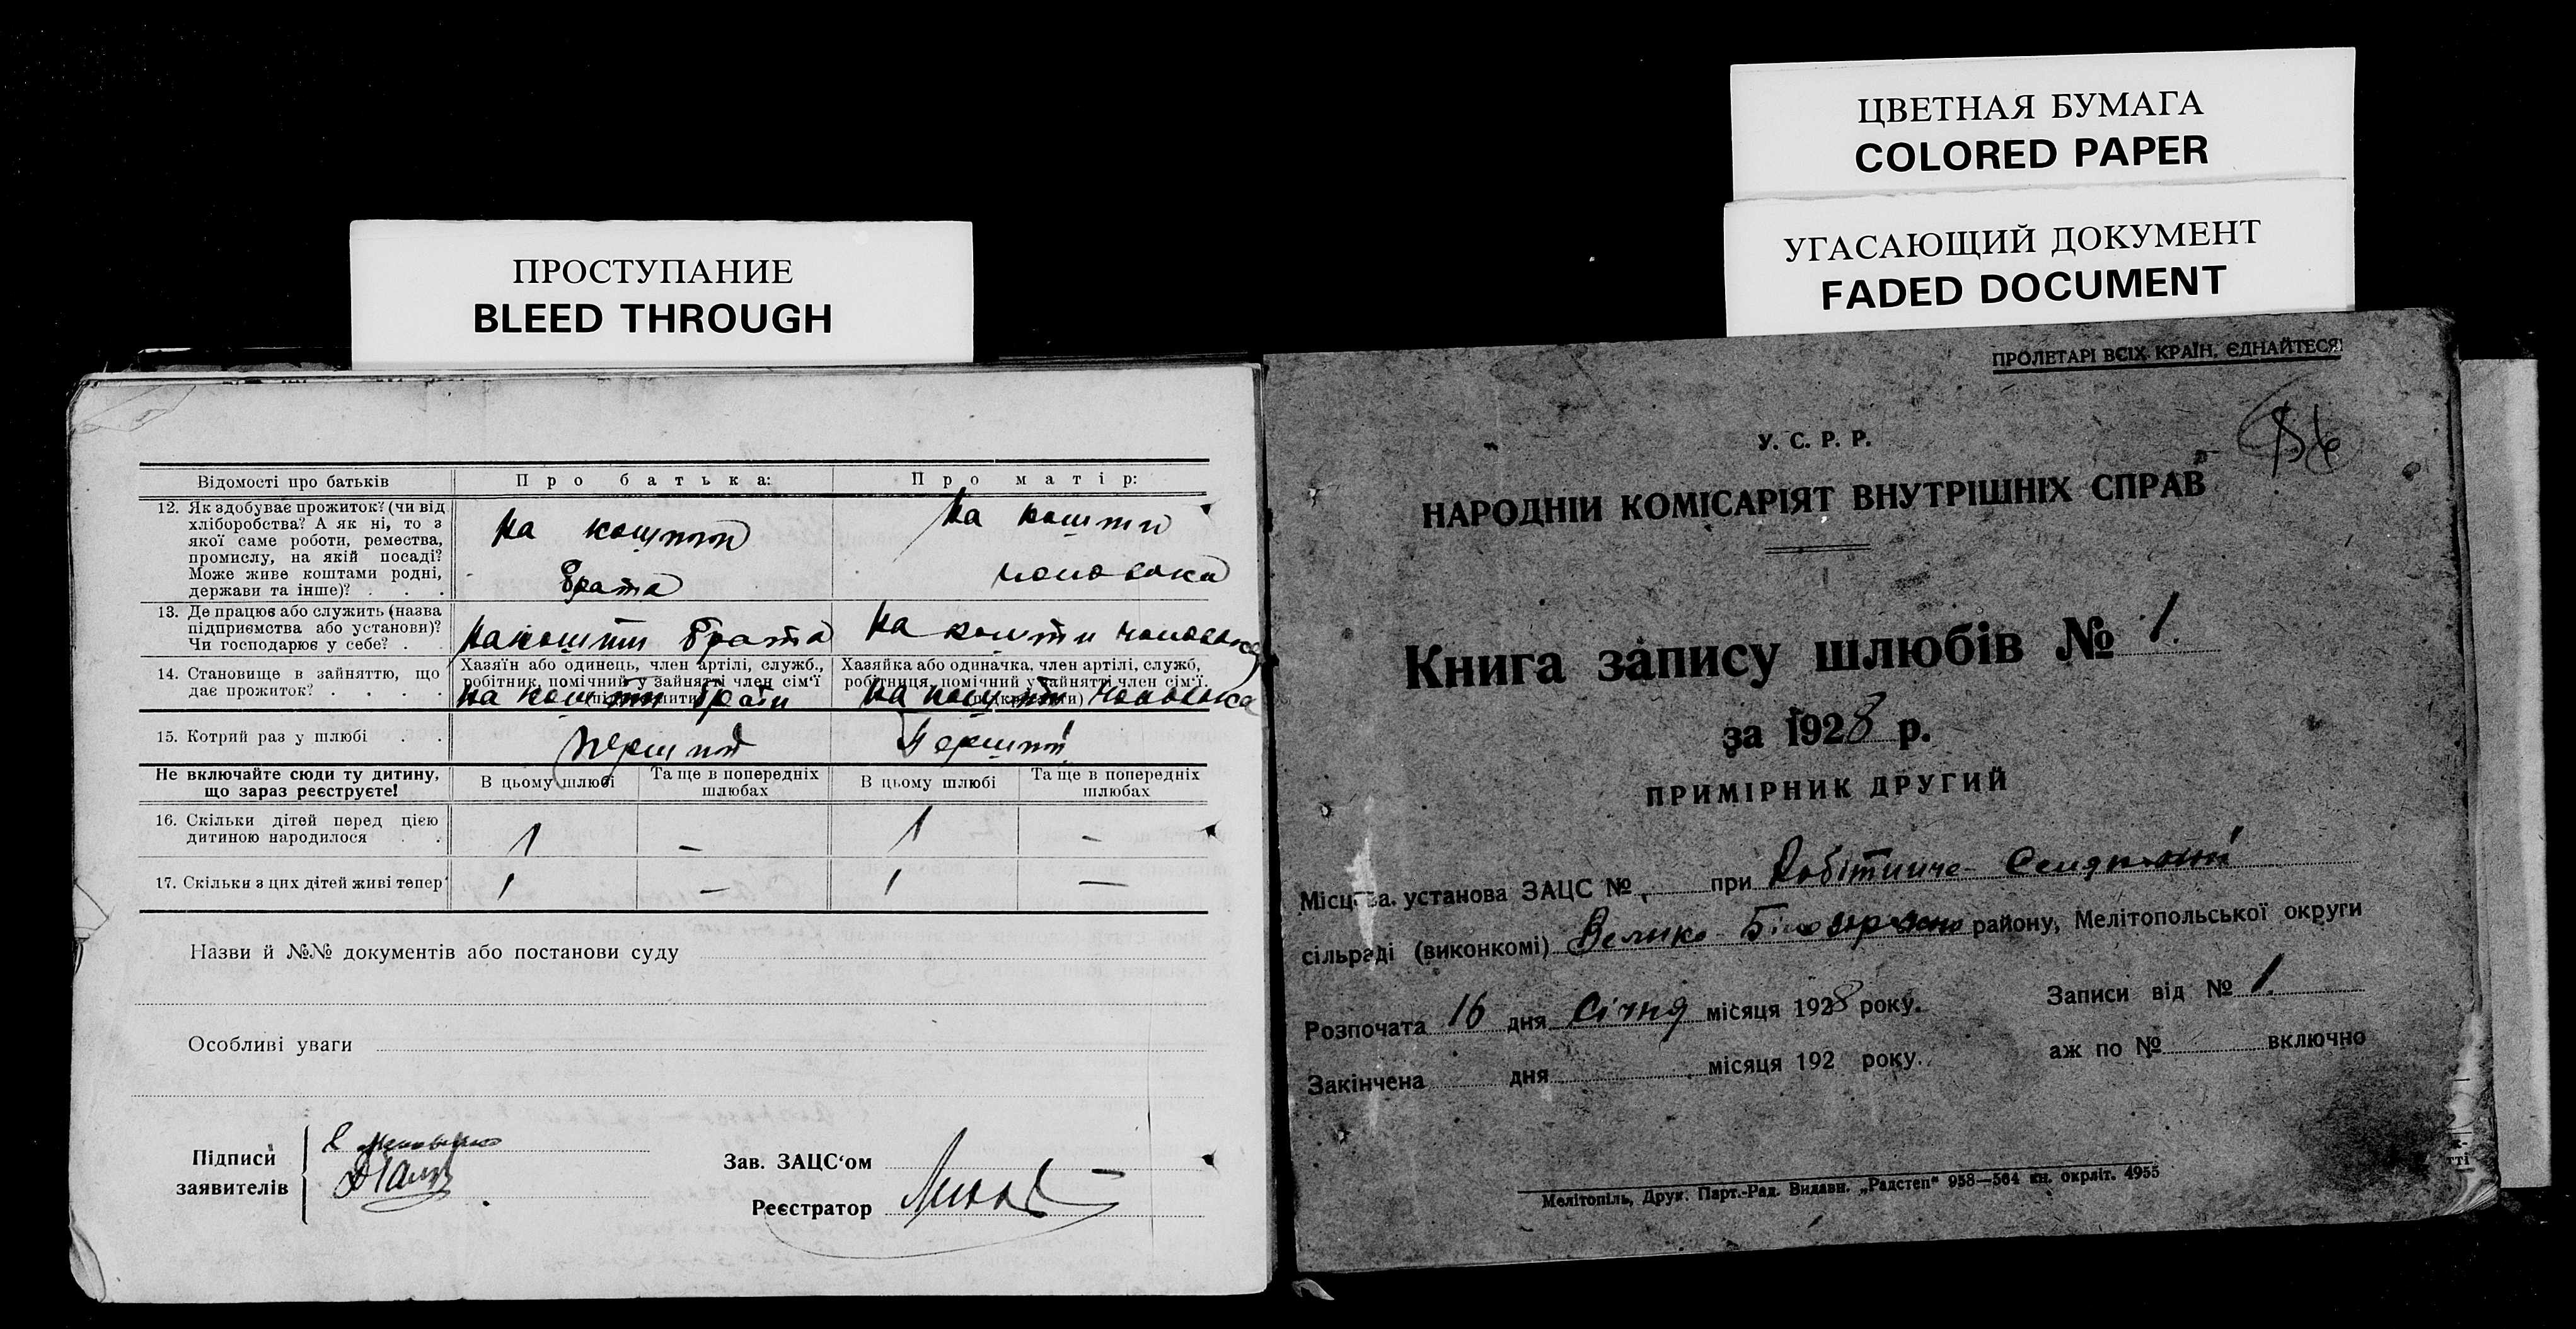 ПРОСТУПАНИЕ
BLEED THROUGH
ЦВЕТНАЯ БУМАГА
COLORED PAPER
УГАСАЮЩИЙ ДОКУМЕНТ
FADED DOCUMENT
Відомості про батьків
Про батька:
Про матір:
12. Як здобуває прожиток? (чи від
хліборобства? А як ні, то з
якої саме роботи, ремества,
промислу, на якій посаді?
Може живе коштами родні,
держави та інше)? . . .
На кошти
брата
На кошти
чоловіка
13. Де працює або служить (назва
підприємства або установи)?
Чи господарює у себе? . .
На кошти брата
На кошти чоловіка
14. Становище в зайняттю, що
дає прожиток? . . . .
Хазяїн або одинець, член артілі, служб.,
робітник, помічний у зайнятті член сім'ї
На кошти брата
Хазяйка або одиначка, член артілі, служб,
робітниця, помічний у зайнятті член сім'ї.
На кошти чоловіка
15. Котрий раз у шлюбі . .
Перший
Перший
Не включайте сюди ту дитину,
що зараз реєструєте!
В цьому шлюбі
Та ще в попередніх
шлюбах
В цьому шлюбі
Та ще в попередніх
шлюбах
16. Скільки дітей перед цією
дитиною народилося . .
1 – 1 –
17. Скільки з цих дітей живі тепер
1 – 1 –
Назви й №№ документів або постанови суду
Особливі уваги
Підписи
заявителів
Зав. ЗАЦС'ом
Реєстратор
ПРОЛЕТАРІ ВСІХ КРАЇН, ЄДНАЙТЕСЯ!
У. С. Р. Р.
НАРОДНІЙ КОМІСАРІЯТ ВНУТРІШНІХ СПРАВ
Книга запису шлюбів № 1.
за 1928 р.
ПРИМІРНИК ДРУГИЙ
Місцева установа ЗАЦС № при Робітниче-
сільраді (виконкомі) Велико-Білозірсько району, Мелітопольської округи
Розпочата 16 дня Січня місяця 1928 року. Записи від № 1.
Закінчена дня місяця 192 року. аж по № включно
Мелітопіль, Друк. Парт.-Рад. Видавн. „Радстеп" 958—564 кн. окрліт. 4955